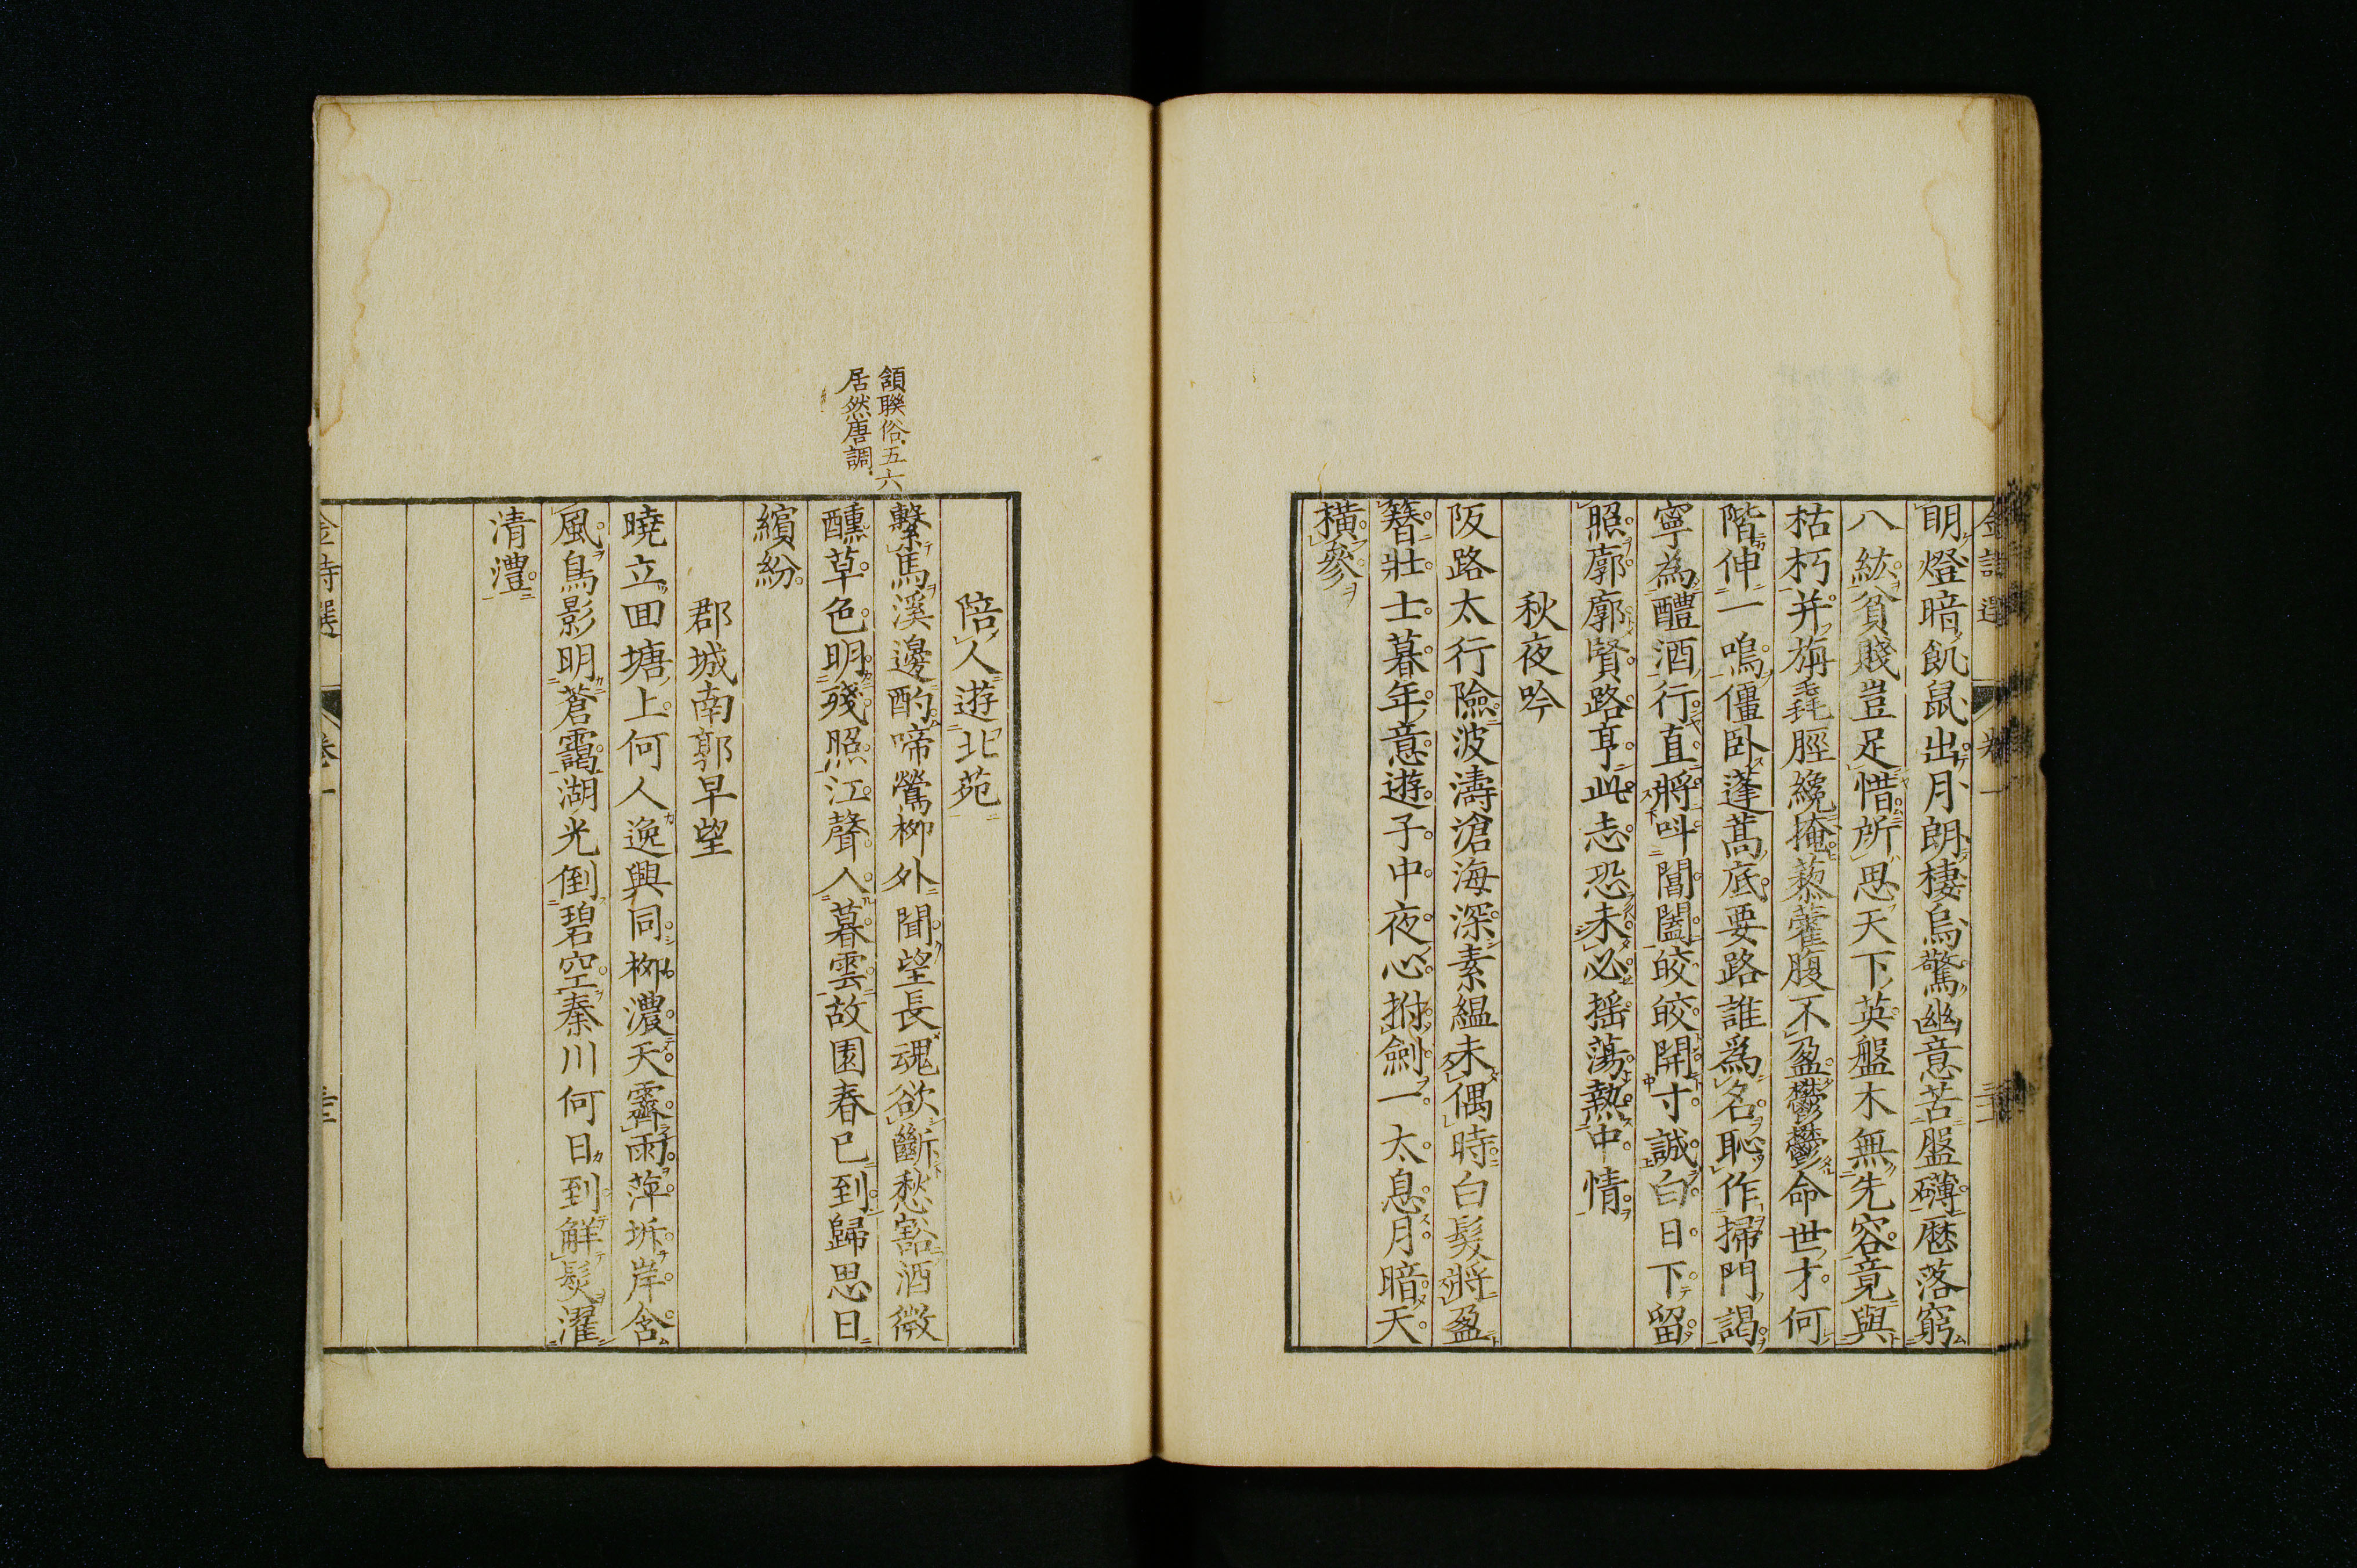 金詩選 卷一
明燈暗飢鼠出月朗棲烏驚幽意苦盤礴歷落窮
八紘貧賤豈足惜所思天下英盤木無先容竟與
枯朽并旃毳脛纔掩藜藿腹不盈鬱鬱命世才何
階伸一鳴僵臥蓬蒿底要路誰爲名恥作掃門謁
寧為醴酒行直將叫閶闔皎皎開寸誠白日下留
照廓廓賢路亨此志恐未必搖蕩熱中情
秋夜吟
阪路太行險波濤滄海深素緼未偶時白髮將盈
簪壯士暮年意遊子中夜心拊劍一太息月暗天
橫參
陪人遊北苑
頷聯俗五六
居然唐調
繫馬溪邊酌啼鶯栁外聞望長魂欲斷愁豁酒微
醺草色明殘照江聲入暮雲故園春已到歸思日
繽紛
郡城南郭早望
曉立囬塘上何人逸興同栁濃天霽雨萍坼岸含
風鳥影明蒼靄湖光倒碧空秦川何日到解髮濯
清灃
金詩選 卷一